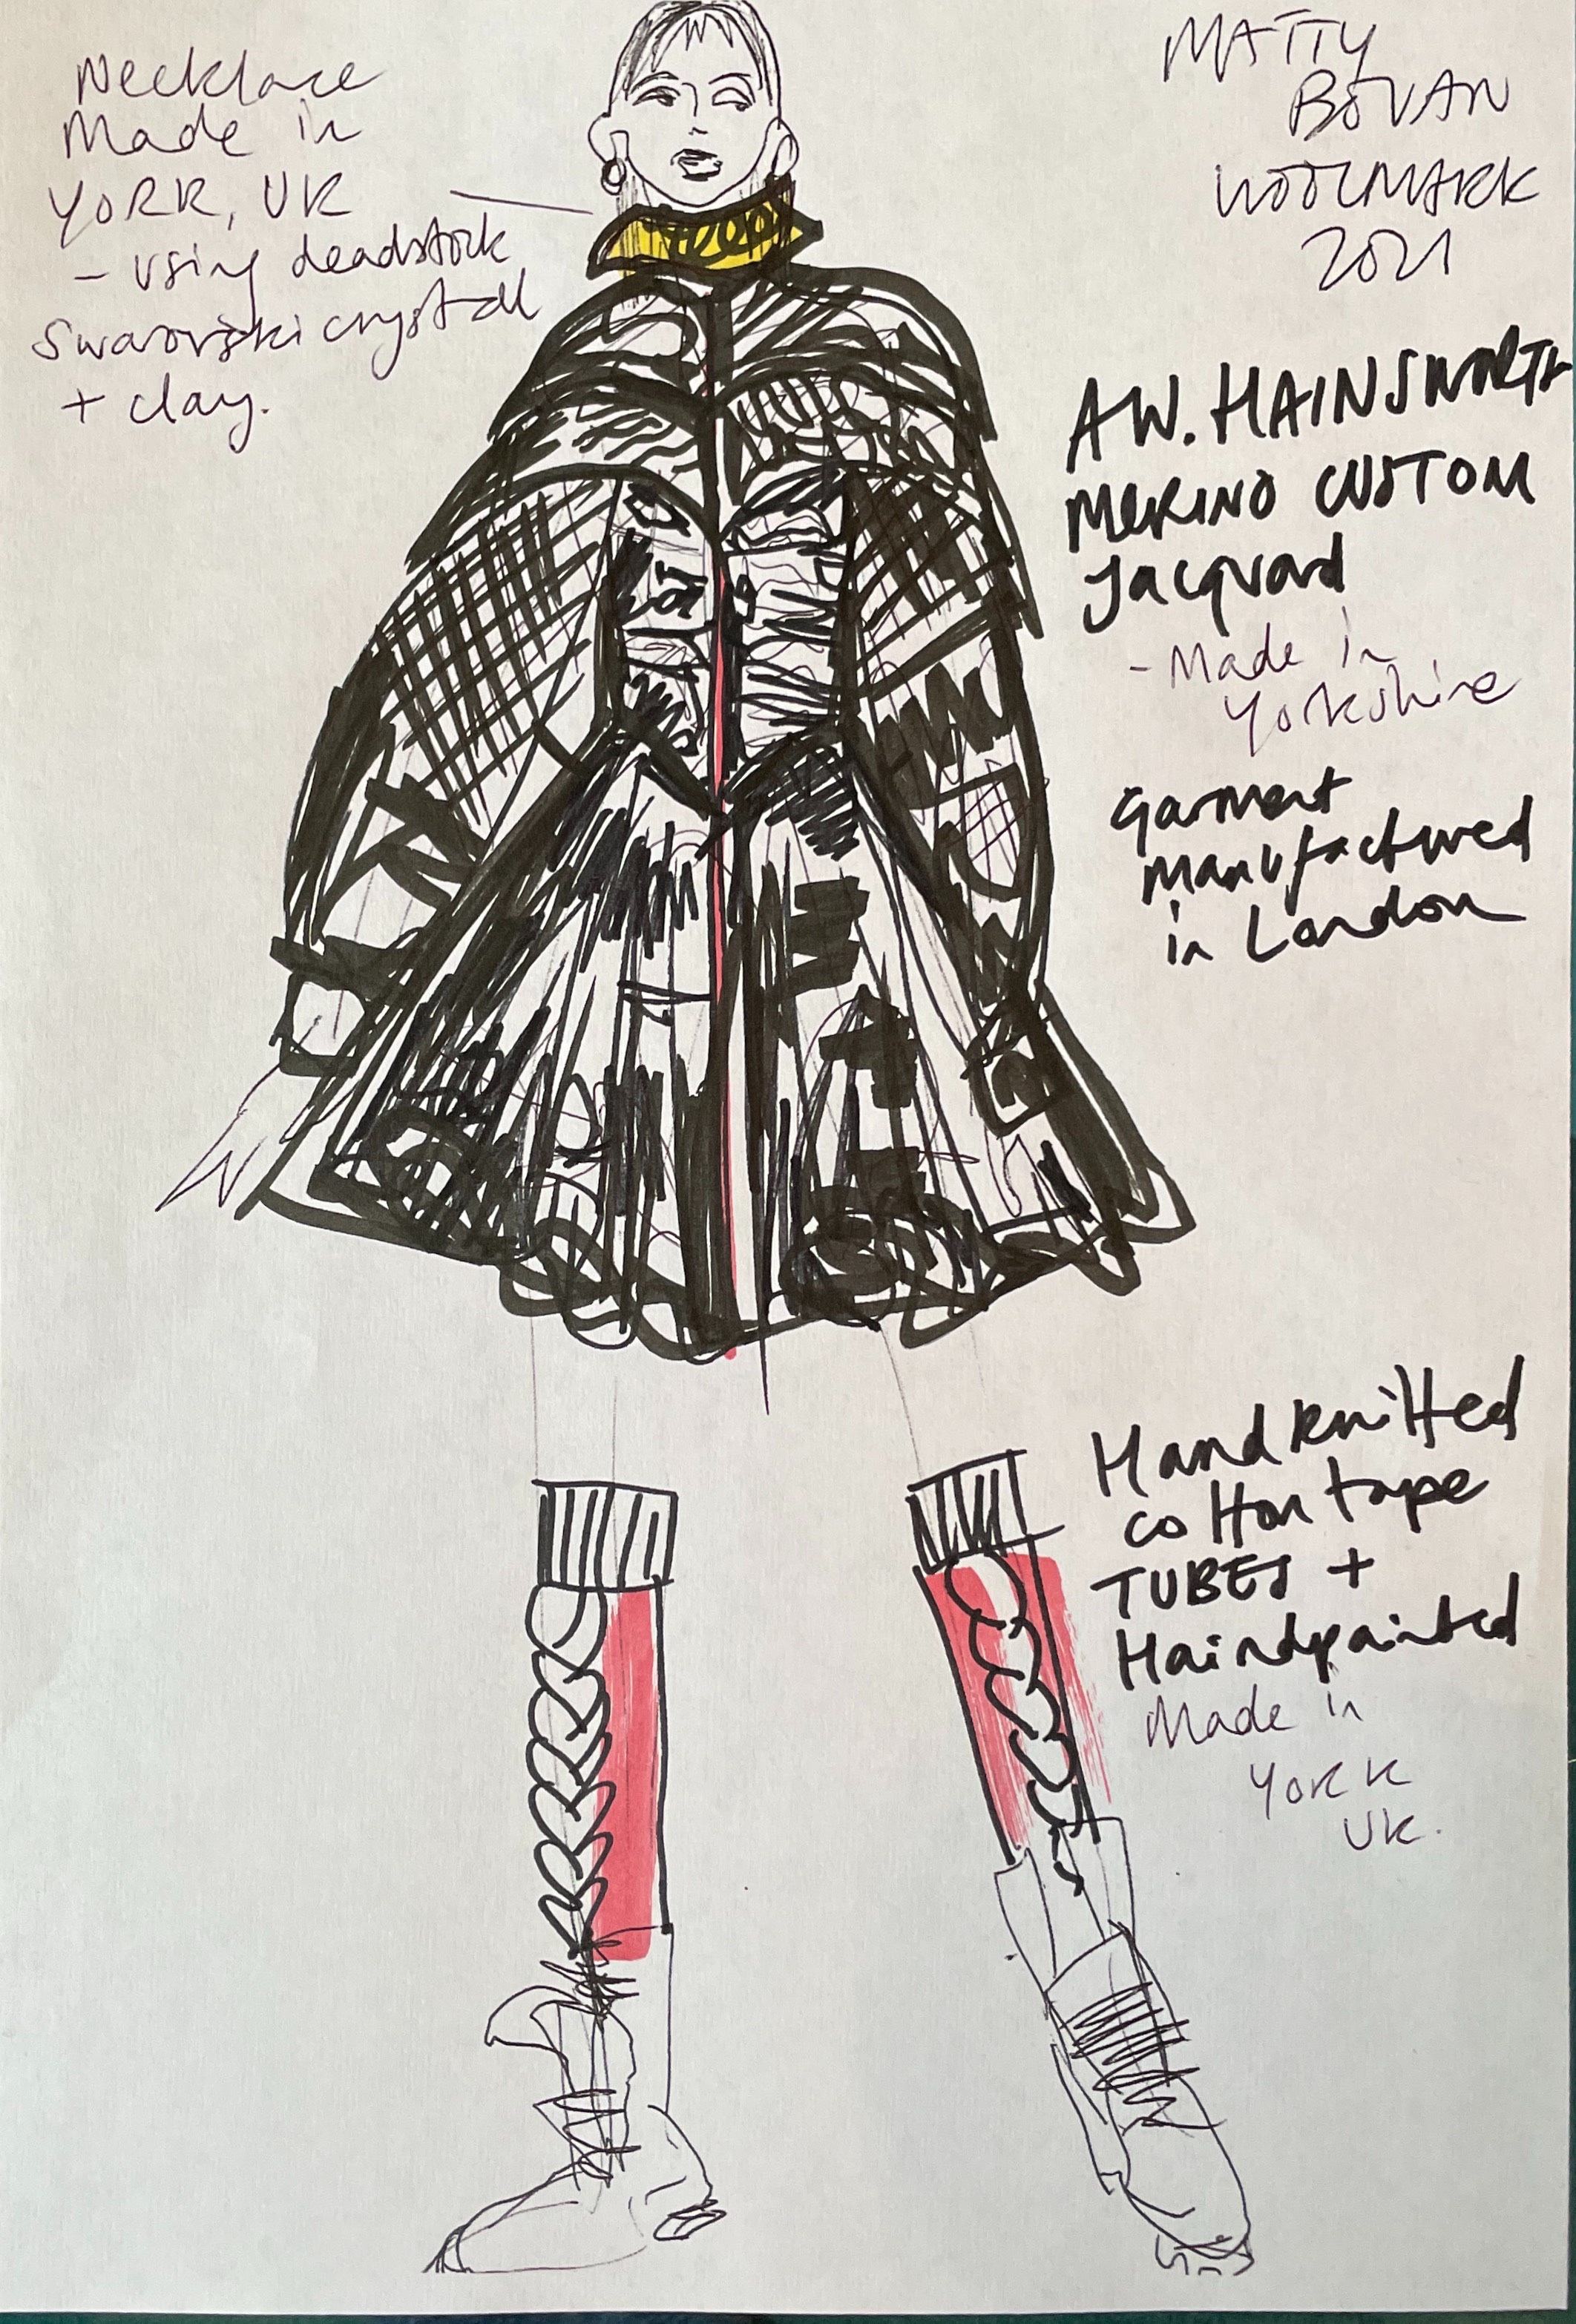 Necklace
Made in
YORK, UK
- using deadstock
Swarovski crystal
+ clay.
MATTY
BOVAN
WOOLMARK
2021
AW. HAINSWORTH
MERINO CUSTOM
Jacquard
- Made in
Yorkshire
Garment
Manufactured
in London
Hand knitted
cotton tape
TUBES +
Haindpainted
Made in
YORK
UK.